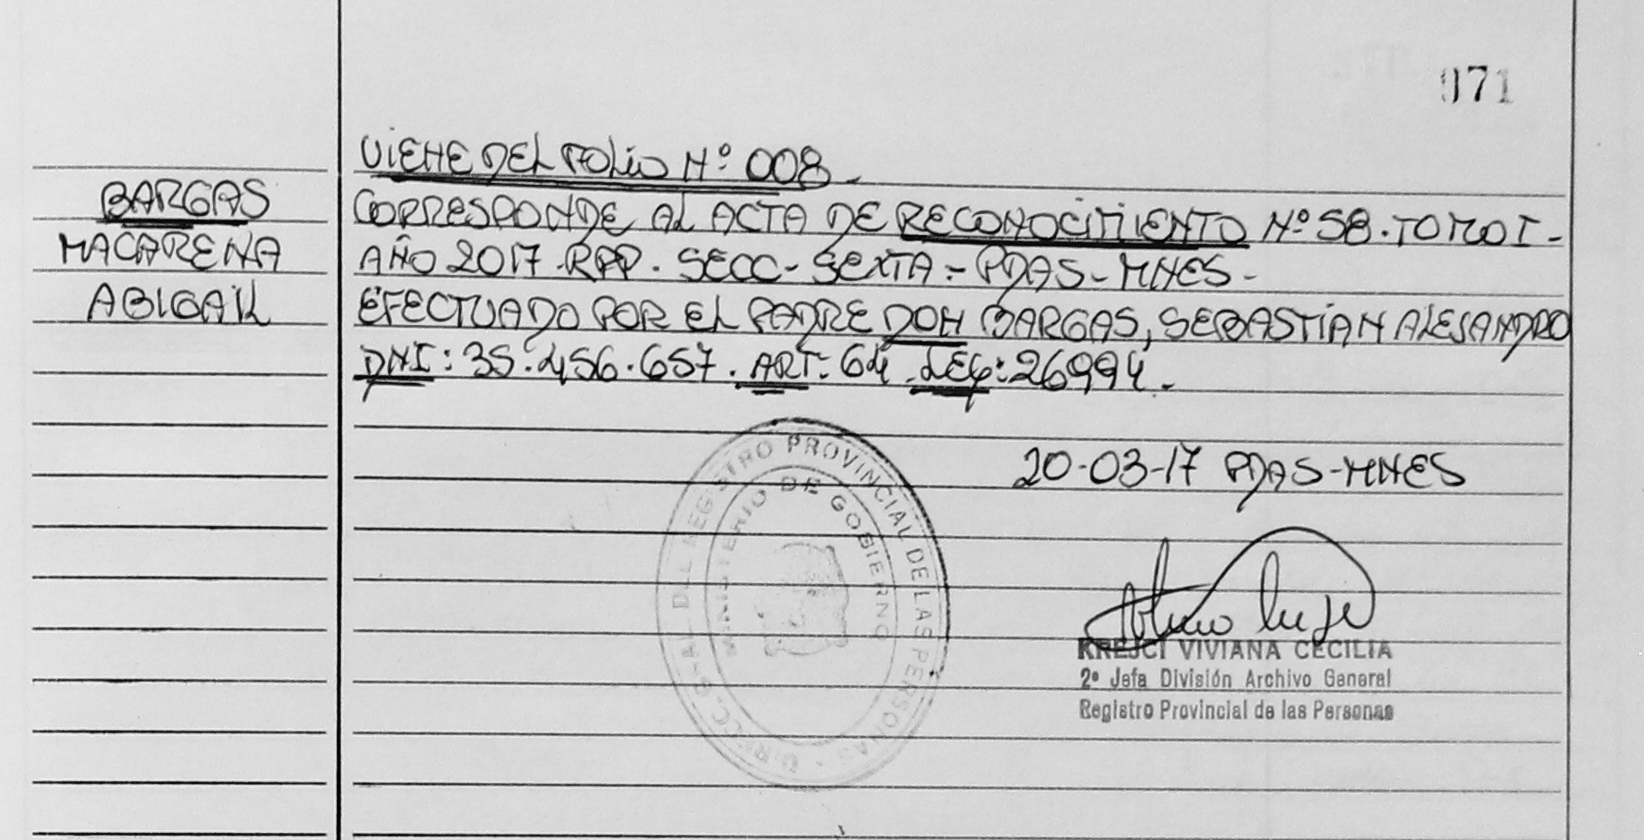 071
VIENE DEL FOLIO Nº 008.-
BARGAS
MACARENA
ABIGAIL
CORRESPONDE AL ACTA DE RECONOCIMIENTO Nº 58. TOMO I-
AÑO 2017. RPP. SECC- SEXTA- PDAS-MNES-
EFECTUADO POR EL PADRE DON BARGAS, SEBASTIÁN ALEJANDRO
DNI: 35.456.657. ART: 64. LEY: 26994.-
20-03-17 PDAS-MNES
DIRECC. G-AL DEL REGISTRO PROVINCIAL DE LAS PERSONAS
MINISTERIO DE GOBIERNO
KREJCI VIVIANA CECILIA
2º Jefa División Archivo General
Registro Provincial de las Personas